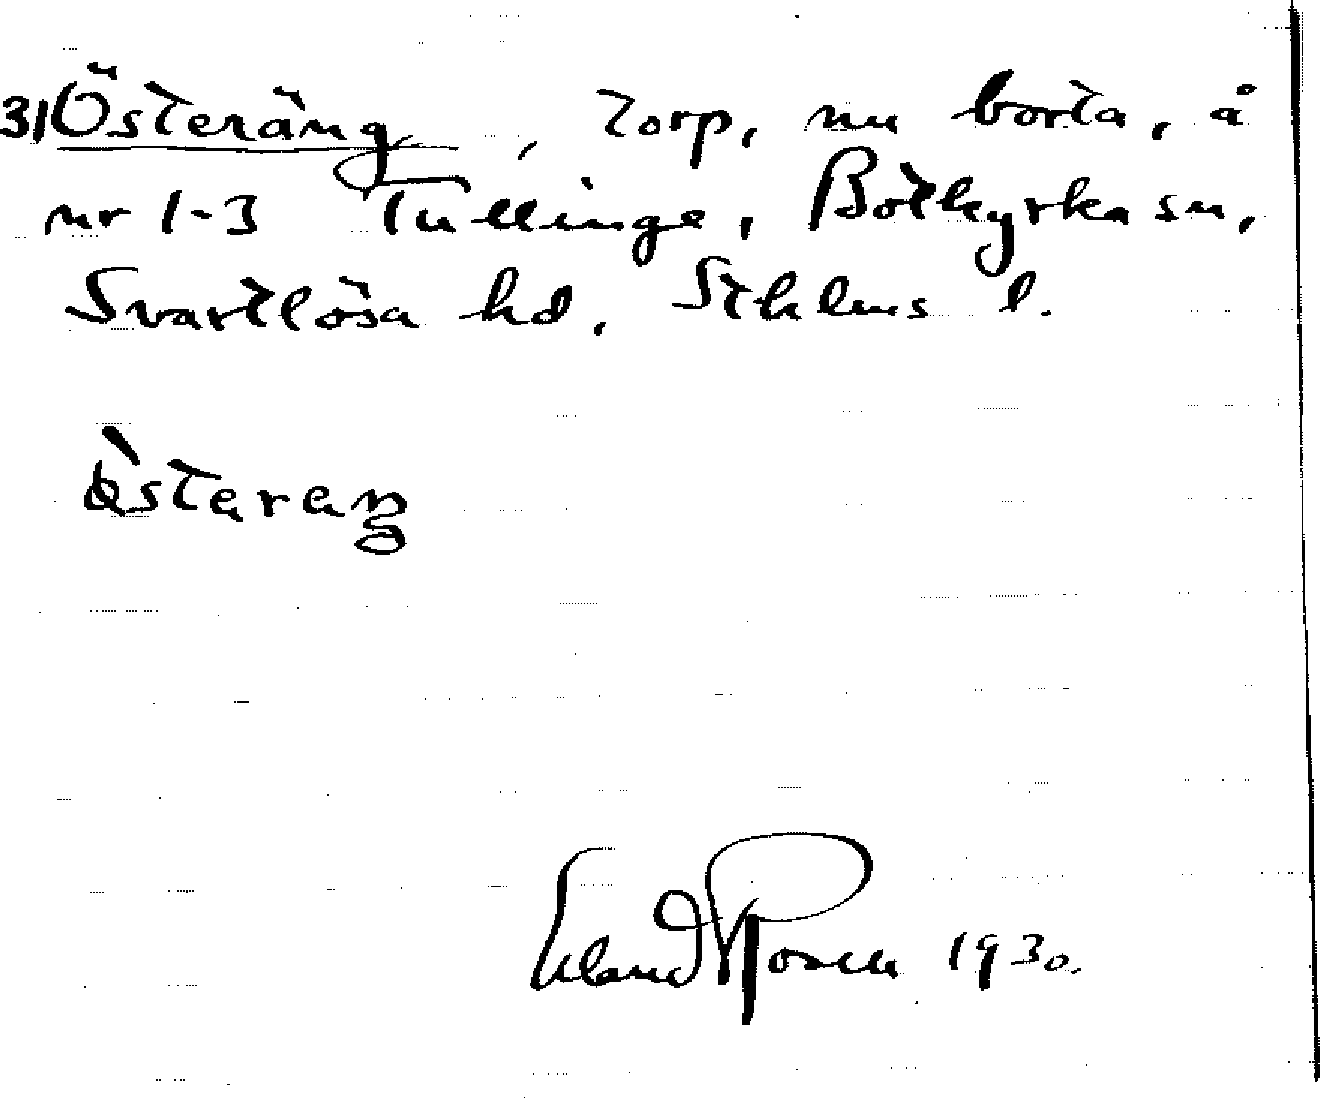 31 Österäng, torp, nu borta, å
nr 1-3 Tullinge, Botkyrka sn,
Svartlösa hd, Sthlms l.
Erland Rosell 1930.